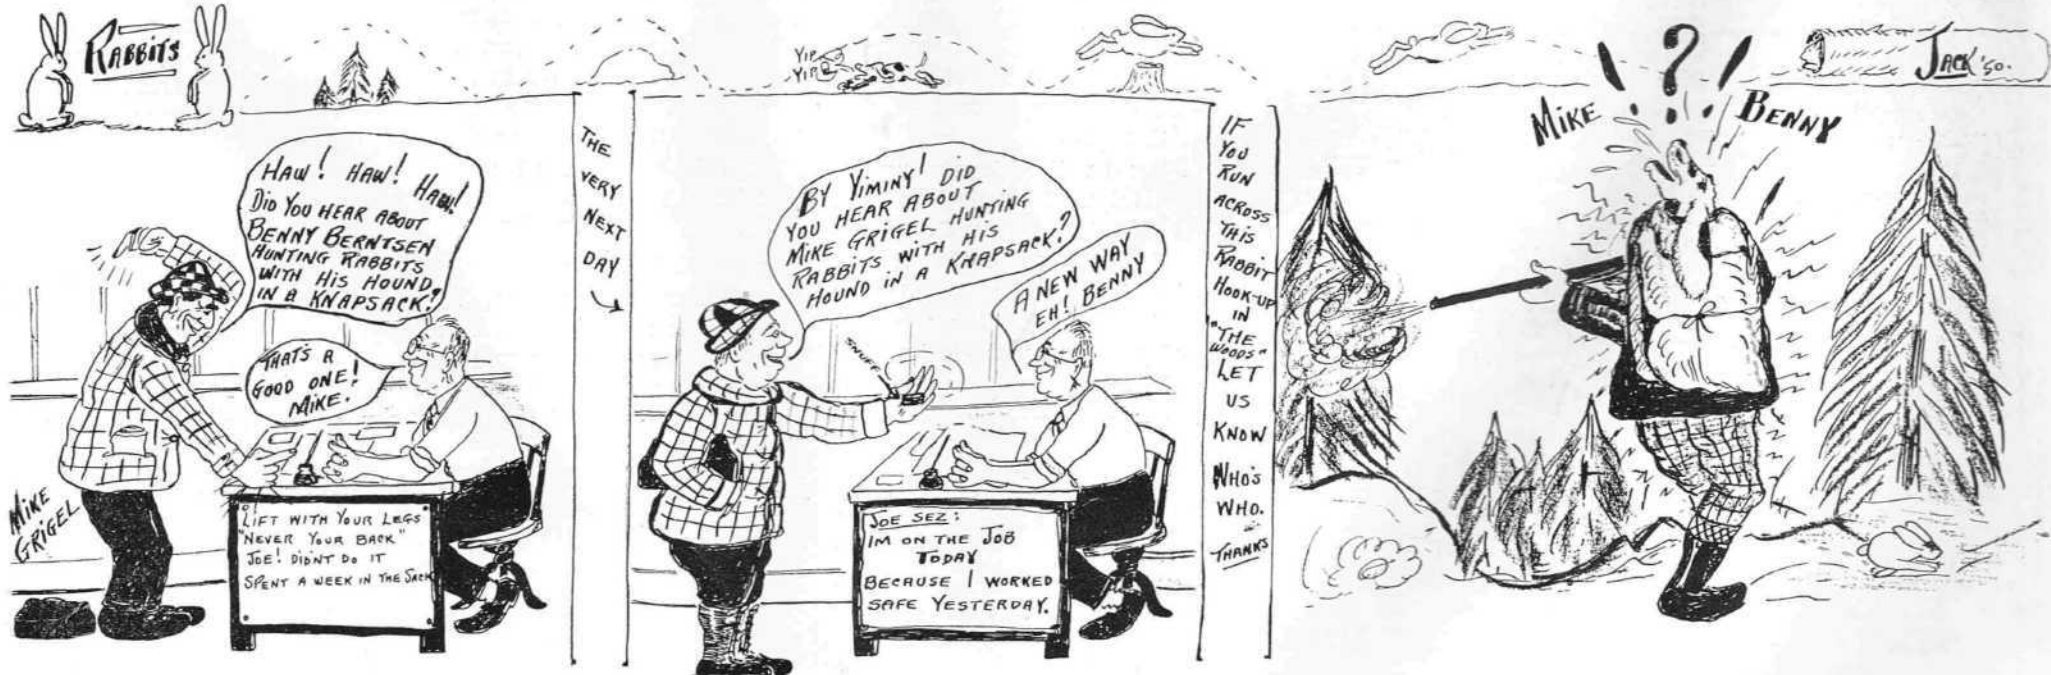 RABBITS
HAW! HAW! HAW!
DID YOU HEAR ABOUT
BENNY BERNTSEN
HUNTING RABBITS
WITH HIS HOUND
IN A KNAPSACK?
THAT'S A
GOOD ONE!
MIKE.
MIKE
GRIGEL
LIFT WITH YOUR LEGS
"NEVER YOUR BACK"
JOE! DIDNT DO IT
SPENT A WEEK IN THE SACK
THE
VERY
NEXT
DAY
YIP
YIP
BY YIMINY! DID
YOU HEAR ABOUT
MIKE GRIGEL HUNTING
RABBITS WITH HIS
HOUND IN A KNAPSACK?
A NEW WAY
EH! BENNY
SNUFF
JOE SEZ:
IM ON THE JOB
TODAY
BECAUSE I WORKED
SAFE YESTERDAY.
IF
YOU
RUN
ACROSS
THIS
RABBIT
HOOK-UP
IN
"THE
WOODS"
LET
US
KNOW
WHO'S
WHO.
THANKS
MIKE
!?!
BENNY
JACK '50.